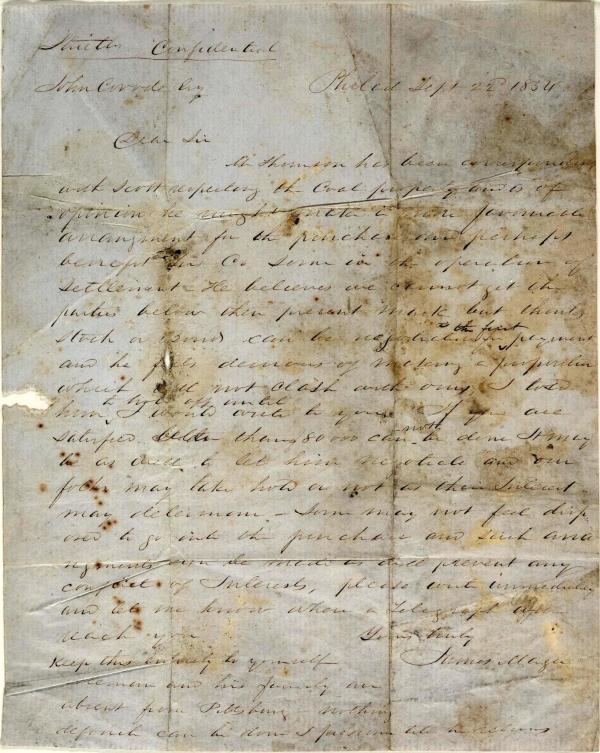 Strictly Confidential
John Covode Esq Philad Sept 22d 1854
Dear Sir
Mr Thomson has been corresponding
with Scott respecting the Coal property and is of
opinion he might make a more favourable
arrangment for the purchase and perhaps
benefit the Co some in the operation of
settlement He believes we cannot get the
parties below their present mark but thinks
Stock or bonds can be negotiated in the first payment
and he feels desirous of making a proposition
which will not clash with ours, I told
him to hold off until I would write to you If you are
satisfied less than 80000 can not be done It may
be as well to let him negotiate and our
folks may take hold or not as their Interest
may determine – Some may not feel disp
osed to go into the purchase and such arra
ngments can be made as will prevent any
conflict of Interests, please write immediately
and let me know when a Telegraph will
reach you Yours truly
Keep this entirely to yourself James Magee
and his family are
absent from Pittsburg – nothing
definite can be done I presume till he returns